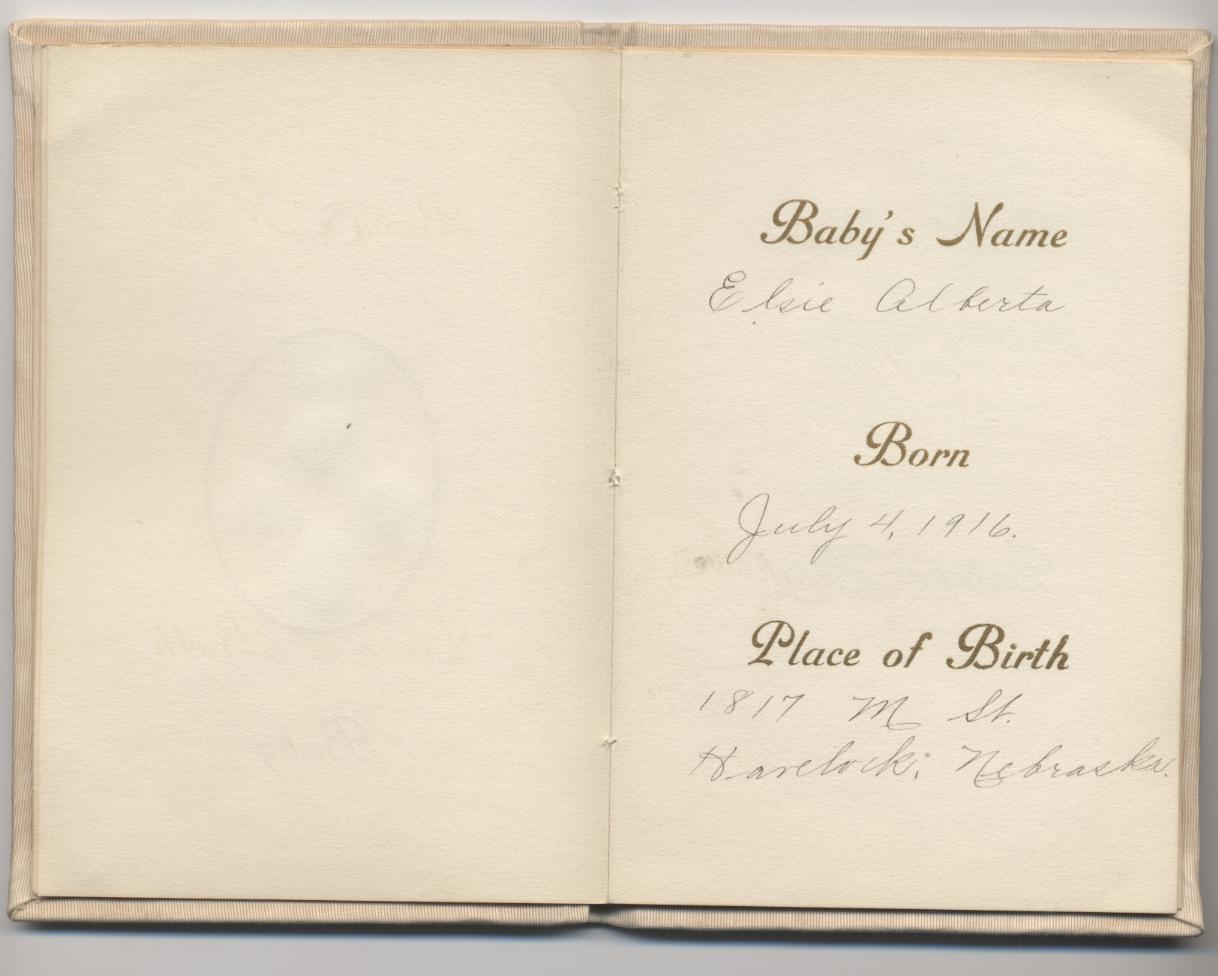 Baby's Name
Elsie Alberta
Born
July 4, 1916.
Place of Birth
1817 M St.
Havelock, Nebraska.